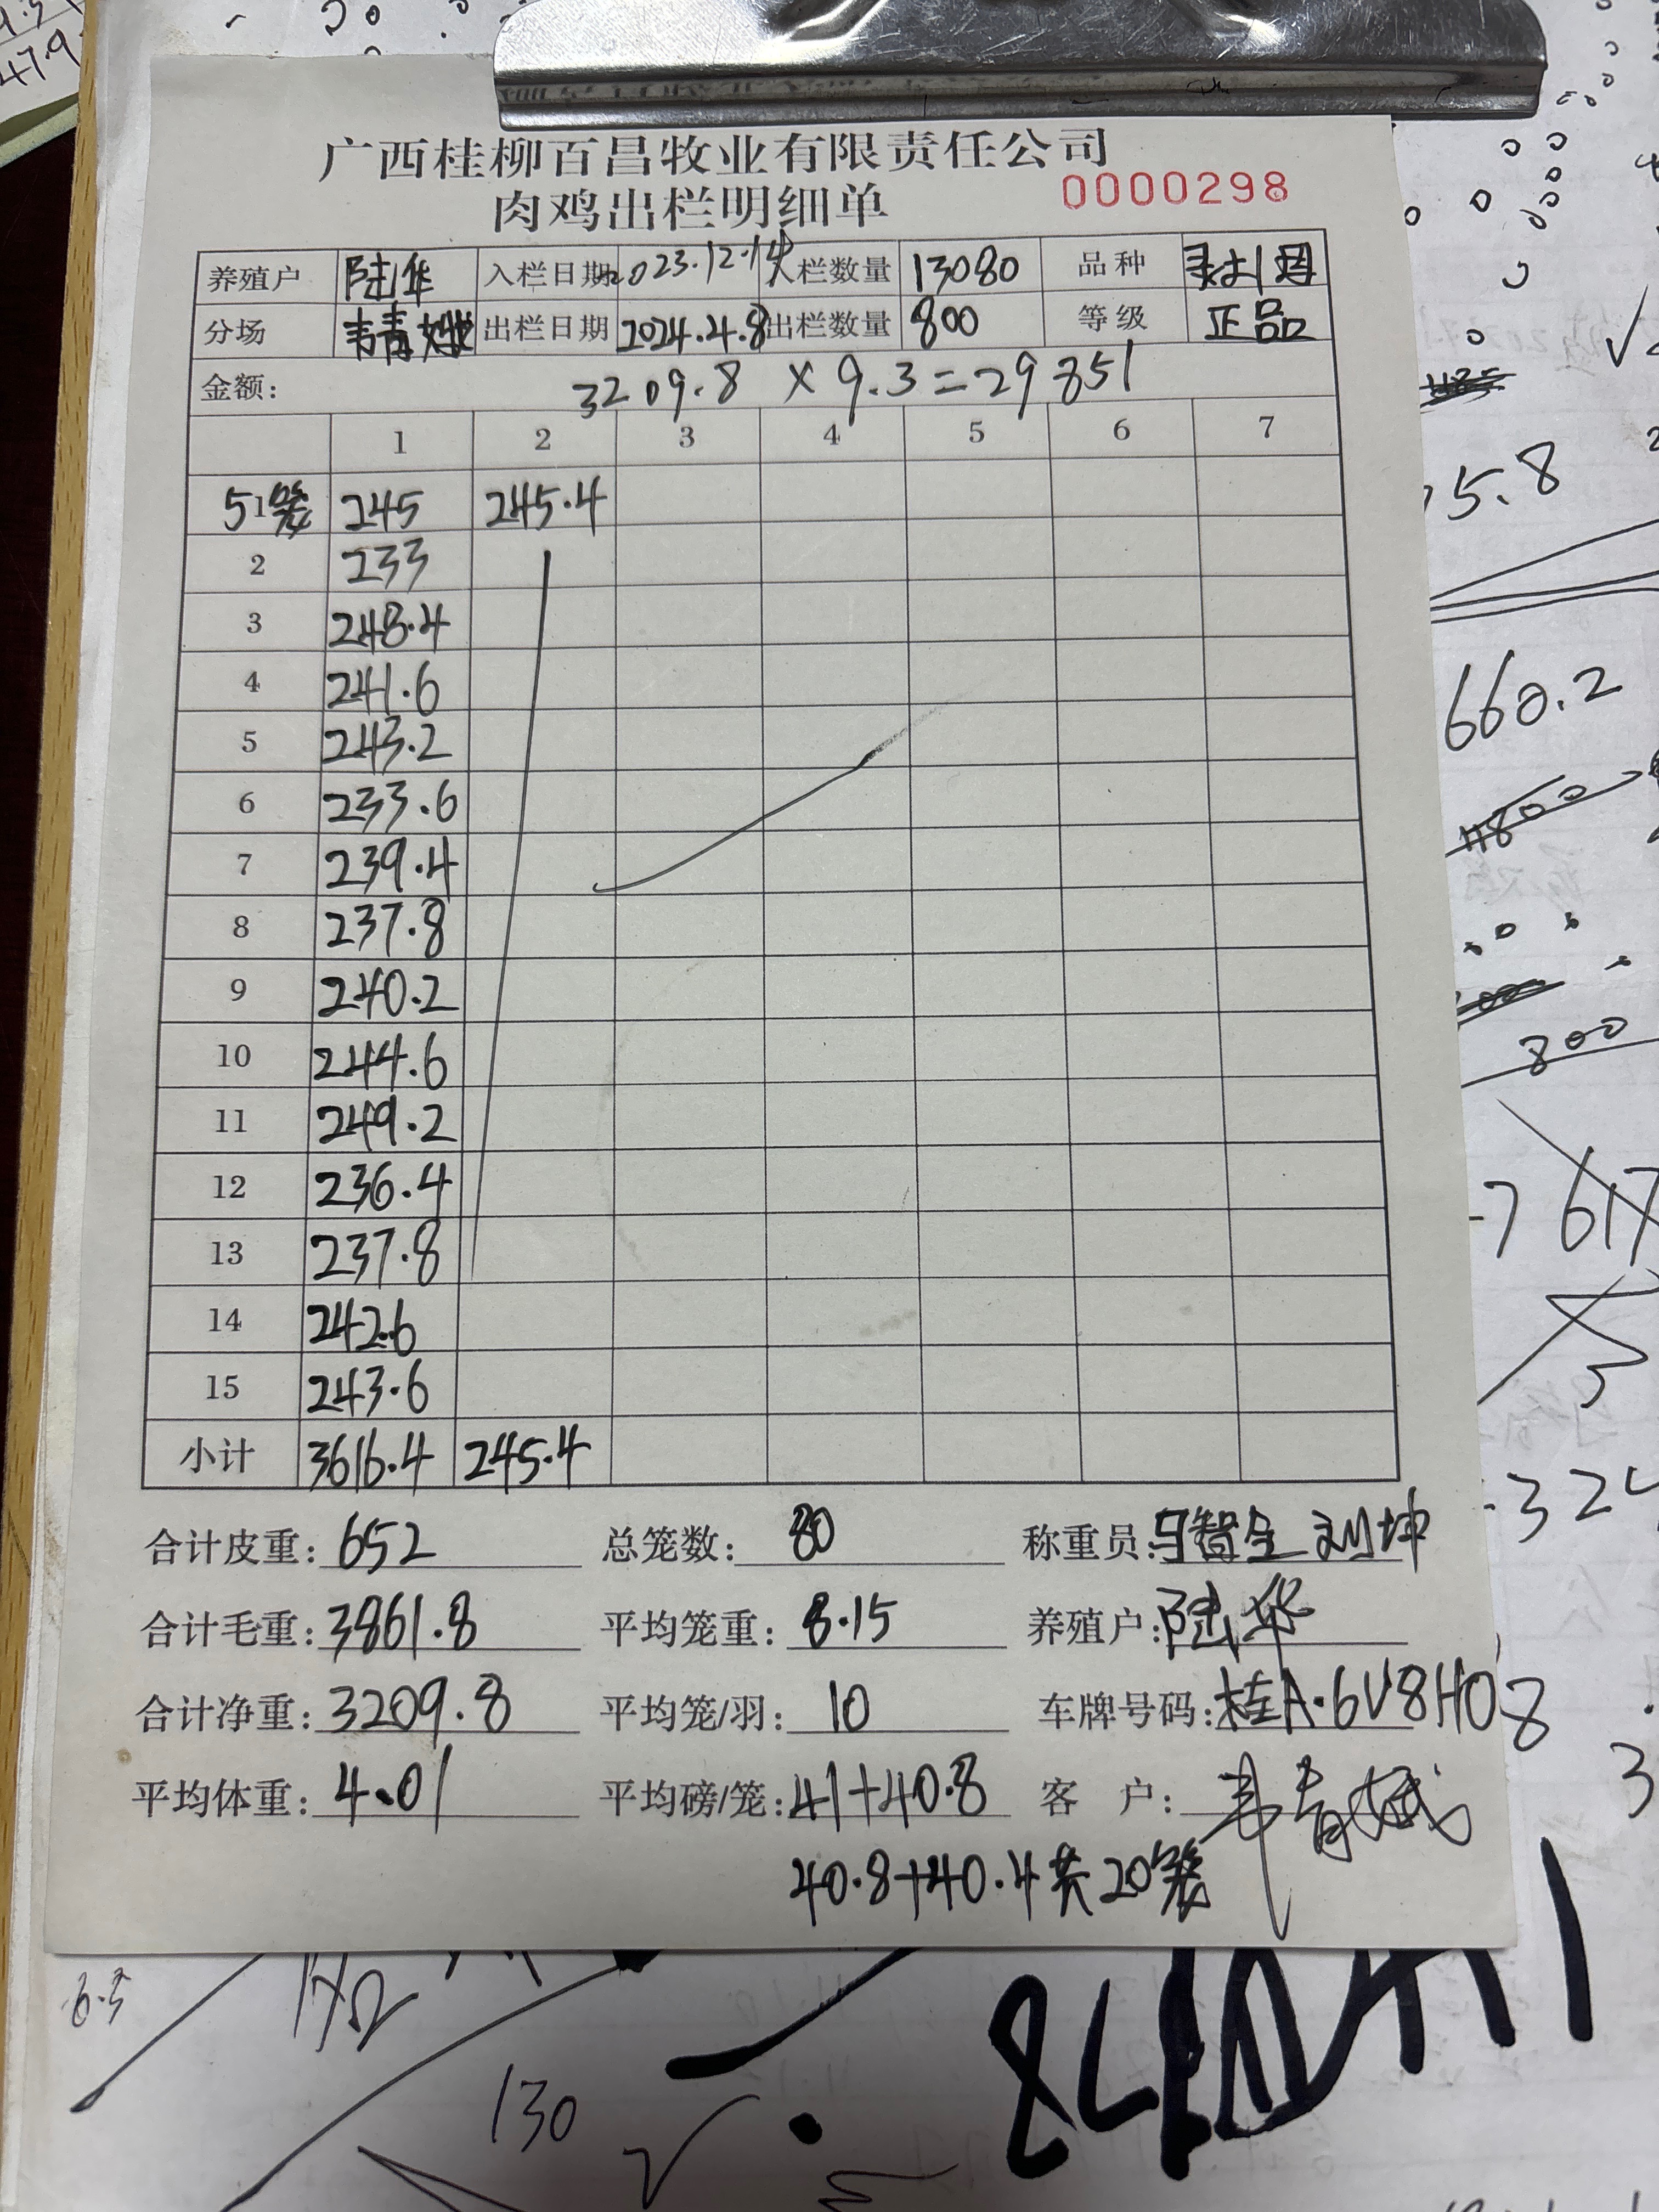 广西桂柳百昌牧业有限责任公司
肉鸡出栏明细单 0000298
养殖户 陆华 入栏日期 2023.12.14 入栏数量 13080 品种
分场 韦青娥 出栏日期 2024.4.8 出栏数量 800 等级 正品
金额: 3209.8 × 9.3=29851
1 2 3 4 5 6 7
5笼 1 245 245.4
2 233
3 248.4
4 241.6
5 243.2
6 233.6
7 239.4
8 237.8
9 240.2
10 244.6
11 249.2
12 236.4
13 237.8
14 242.6
15 243.6
小计 3616.4 245.4
合计皮重: 652 总笼数: 80 称重员: 马智全 刘坤
合计毛重: 3861.8 平均笼重: 8.15 养殖户: 陆华
合计净重: 3209.8 平均笼/羽: 10 车牌号码: 桂A·6V8H08
平均体重: 4.01 平均磅/笼: 41+40.8 客户: 韦青娥
40.8+40.4共20笼
47.9
5.8
660.2
800
7 617
324
3
6.5
130